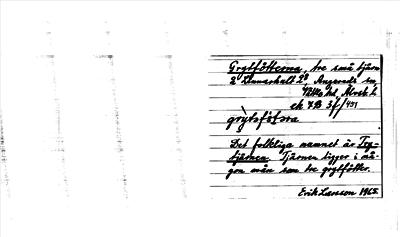 Grytfötterna, tre små tjärn
2 Unnarhult 2⁸, Angereds sn,
Vättle hd, Älvsb. l.
ek 7B 3f/451
grytsföttra
Det folkliga namnet är Try-
tjärnen. Tjärnen ligger i nå-
gon mån som tre grytfötter.
Erik Larsson 1965.